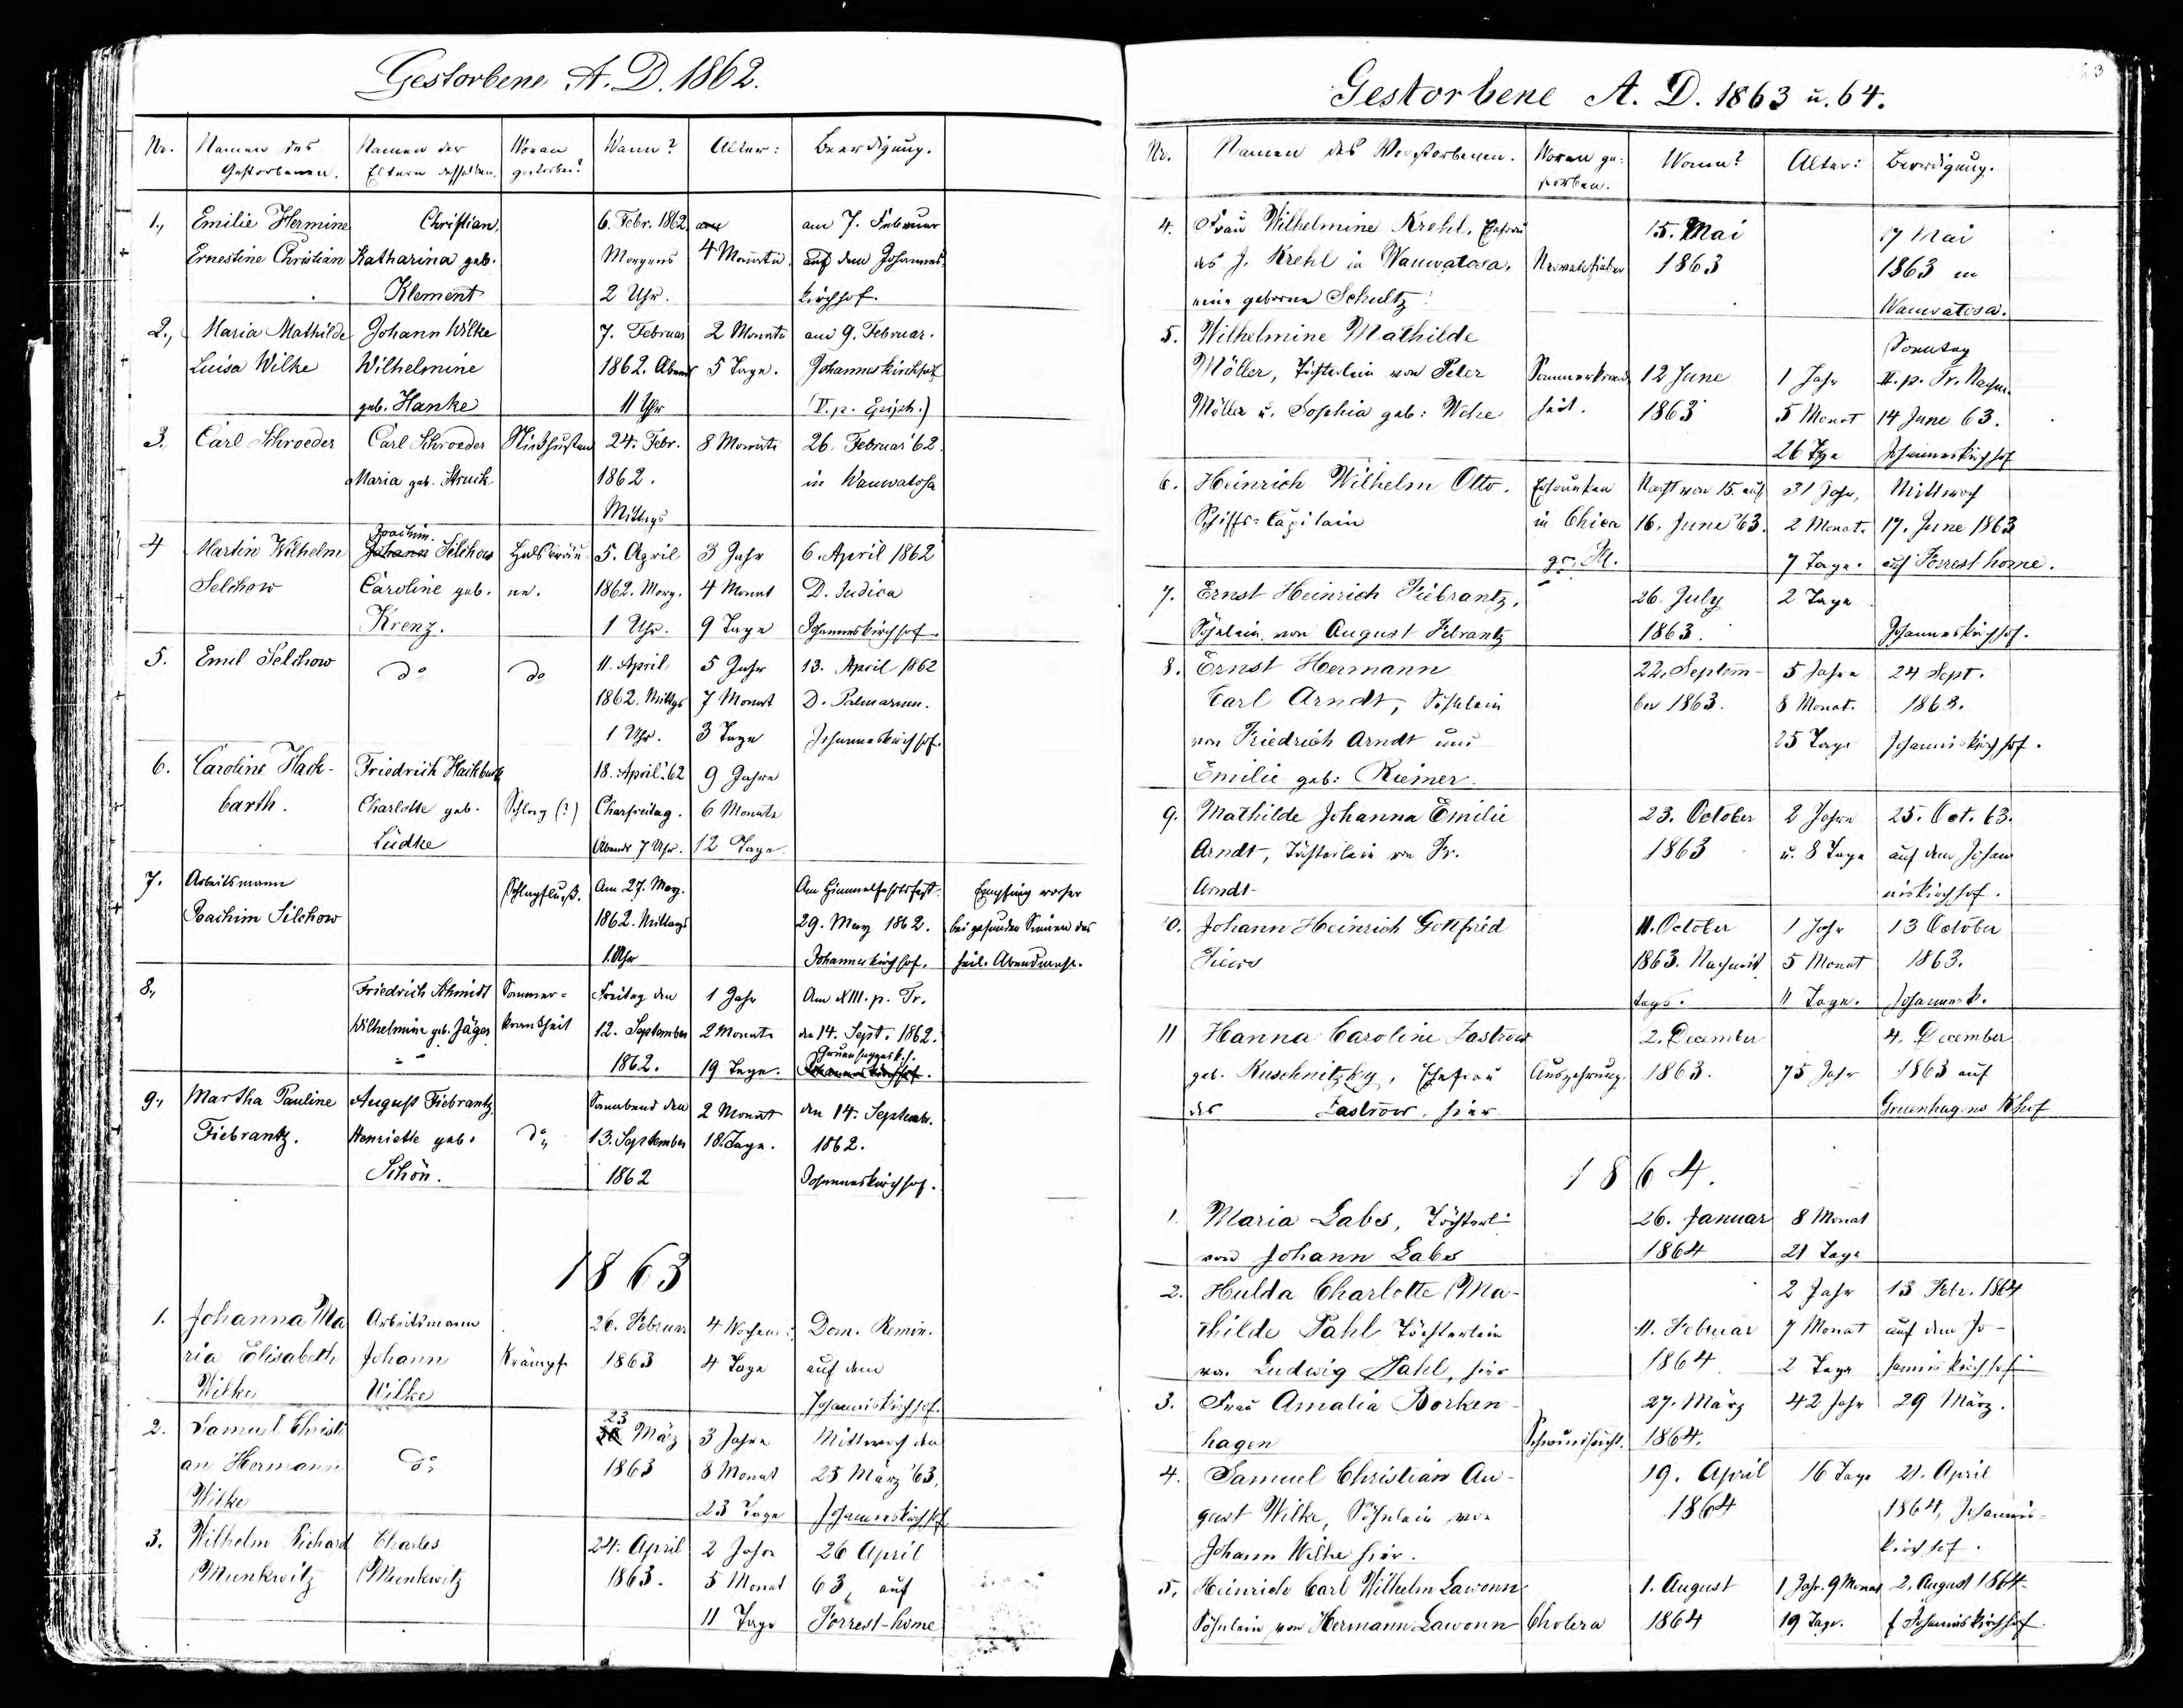 Gestorbene A. D. 1862.
Nr. Namen des Gestorbenen. Namen der Eltern desselben. Woran gestorben? Wann? Alter: Beerdigung.
1., Emilie Hermine Christian, 6. Febr. 1862 am 7. Februar
Ernestine Christian Katharina geb. Morgens 4 Monate. auf dem Johannes
Klement 2 Uhr. kirchhof.
2., Maria Mathilde Johann Wilke 7. Februar 2 Monate am 9. Februar.
Luisa Wilke Wilhelmine 1862. Abends 5 Tage. Johanneskirchhof
geb. Hanke 11 Uhr (V. p. Epiph.)
3. Carl Schroeder Carl Schroeder Stickhusten 24. Febr. 8 Monate 26. Februar '62.
Maria geb. Struck 1862. in Wauwatosa
Mittags
Joachim.
4 Martin Wilhelm Johann Selchow Halsbräu- 5. April 3 Jahr 6. April 1862
Selchow Caroline geb. ne. 1862. Morg. 4 Monat D. Judica
Krenz. 1 Uhr. 9 Tage Johanneskirchhof.
5. Emil Selchow do do 11. April 5 Jahr 13. April 1862
1862. Mittgs 7 Monat D. Palmarum.
1 Uhr. 3 Tage Johanneskirchhof.
6. Caroline Hack- Friedrich Hackbarth 18. April. 62 9 Jahre
barth. Charlotte geb. Schlag (?) Charfreitag. 6 Monate
Lüdke Abends 7 Uhr. 12 Tage.
7. Arbeitsmann Schlagfluß. Am 27. May. Am Himmelfahrtsfest. Empfing vorher
Joachim Silchow 1862. Mittags 29. May 1862. bei gesunden Sinnen das
1. Uhr Johanneskirchhof. heil. Abendmahl.
8., Friedrich Schmidt Sommer- Freitag den 1 Jahr Am XIII. p. Tr.
Wilhelmine geb. Jäger krankheit 12. September 2 Monate den 14. Sept. 1862.
1862. 19 Tage. Gruenhagens k.h. Johanneskirchhof.
9., Martha Pauline August Fiebrantz, Sonnabend den 2 Monat den 14. Septembr.
Fiebrantz. Henriette geb. do 13. September 18. Tage. 1862.
Schön. 1862 Johanneskirchhof.
1863
1. Johanna Ma Arbeitsmann 26. Februar 4 Wochen Dom. Remin.
ria Elisabeth Johann Krämpfe 1863 4 Tage auf dem
Wilke Wilke Johanniskirchhof.
23
2. Samuel Christi März 3 Jahre Mittwoch den
an Hermann do 1863 8 Monat 25 März '63,
Wilke 23 Tage Johanneskirchhof
3. Wilhelm Richard Charles 24. April 2 Jahre 26 April
Munkwitz Munkwitz 1863. 5 Monat 63, auf
11 Tage Forrest-home
Gestorbene A. D. 1863 u. 64.
Nr. Namen des Verstorbenen. Woran gestorben. Wann? Alter: Beerdigung.
4. Frau Wilhelmine Krehl, Ehefrau 15. Mai 17 Mai
des J. Krehl in Wauwatosa, Nervenfieber 1863 1863 in
eine geborne Schultz. Wauwatosa.
5. Wilhelmine Mathilde Sonntag
Möller, Töchterlein von Peter Sommerkrank 12 June 1 Jahr II. p. Tr. Nachm.
Möller u. Sophia geb: heit. 1863 5 Monat 14 June 63.
26 Tge Johanneskirchhof
6. Heinrich Wilhelm Otto. Ertrunken Nacht von 15. auf 31 Jahr, Mittwoch
Schiffs-Capitain in Chica 16. June '63. 2 Monat. 17. June 1863
go, Ill. 7 Tage. auf Forrest home.
7. Ernst Heinrich Fiebrantz, 26. July 2 Tage
Söhnlein von August Febrantz 1863. Johanneskirchhof.
8. Ernst Hermann 22. Septem- 5 Jahre 24 Sept.
Carl Arndt, Söhnlein ber 1863. 8 Monat. 1863.
von Friedrich Arndt und 25 Tage Johanniskirchhof.
Emilie geb: Riemer.
9. Mathilde Johanna Emilie 23. October 2 Jahre 25. Oct. 63.
Arndt, Töchterlein von Fr. 1863 u. 8 Tage auf dem Johan
Arndt niskirchhof.
10. Johann Heinrich Gottfried 11. October 1 Jahr 13 October
1863. Nachmit 5 Monat 1863.
tags. 11 Tage. Johannesk.
11 Hanna Caroline Jastrow 2. December 4. December
geb. Ruschnitzky, Ehefrau Auszehrung. 1863. 75 Jahr 1863 auf
des Jastrow, hier Gruenhagens Khof
1864.
1. Maria Labs, Töchterl 26. Januar 8 Monat
von Johann Labs 1864 21 Tage
2. Hulda Charlotte Ma- 2 Jahr 13 Febr. 1864
thilde Pahl Töchterlein 11. Februar 7 Monat auf dem Jo-
von Ludwig Pahl, hier 1864 2 Tage hanniskirchhof
3. Frau Amalia Borken- 27. März 42 Jahr 29 März.
hagen Schwindsucht. 1864.
4. Samuel Christian Au- 19. April 16 Tage 21. April
gust Wilke, Söhnlein von 1864 1864, Johannis-
Johann Wilke hier. kirchhof.
5, Heinrich Carl Wilhelm Lawonn 1. August 1 Jahr. 9 Monat 2. August 1864.
Söhnlein von Hermann Lawonn Cholera 1864 19 Tage. Johanniskirchhof.